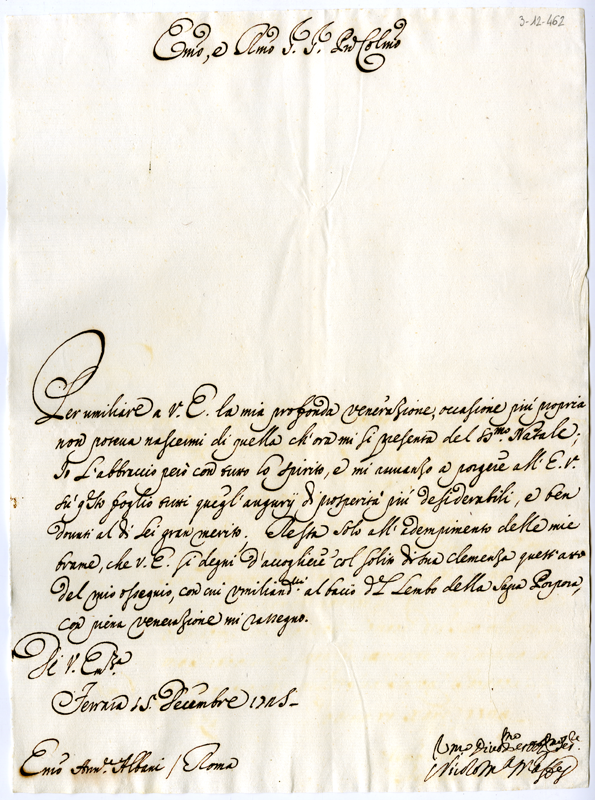 3-12-462
Emo, e Rmo S. S. Pne Colmo
Per umiliare a V. E. la mia profonda venerazione, occasione più propria
non poteva nascermi di quella ch'ora mi si presenta del SSmo Natale;
Io l'abbraccio però con tutto lo spirito, e mi avvanzo a porgere all'E. V.
sù q̃sto foglio tutti quegl'augurij di prosperità più desiderabili, e ben
dovuti al di Lei gran merito. Resta solo all'adempimento delle mie
brame, che V. E. si degni d'accogliere col solito di sua clemenza questi atti
del mio ossequio, con cui umiliandomi al bacio del Lembo della Sagra Porpora,
con piena venerazione mi rassegno.
Di V. Emza
Decembre
Emo Annle Albani / Roma